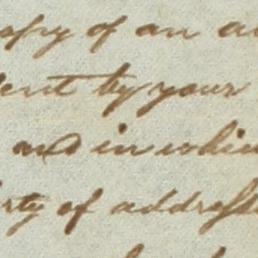 opy of an a
ent by your
and in whic
rty of address